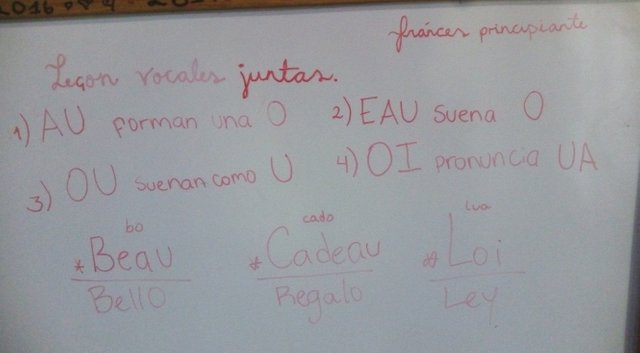 2016
fráncer principiante
Leçon vocales juntas.
1) AU forman una O
2) EAU suena O
3) OU suenan como U
4) OI pronuncia UA
bo
* Beau
Bello
cado
* Cadeau
Regalo
lua
* Loi
Ley